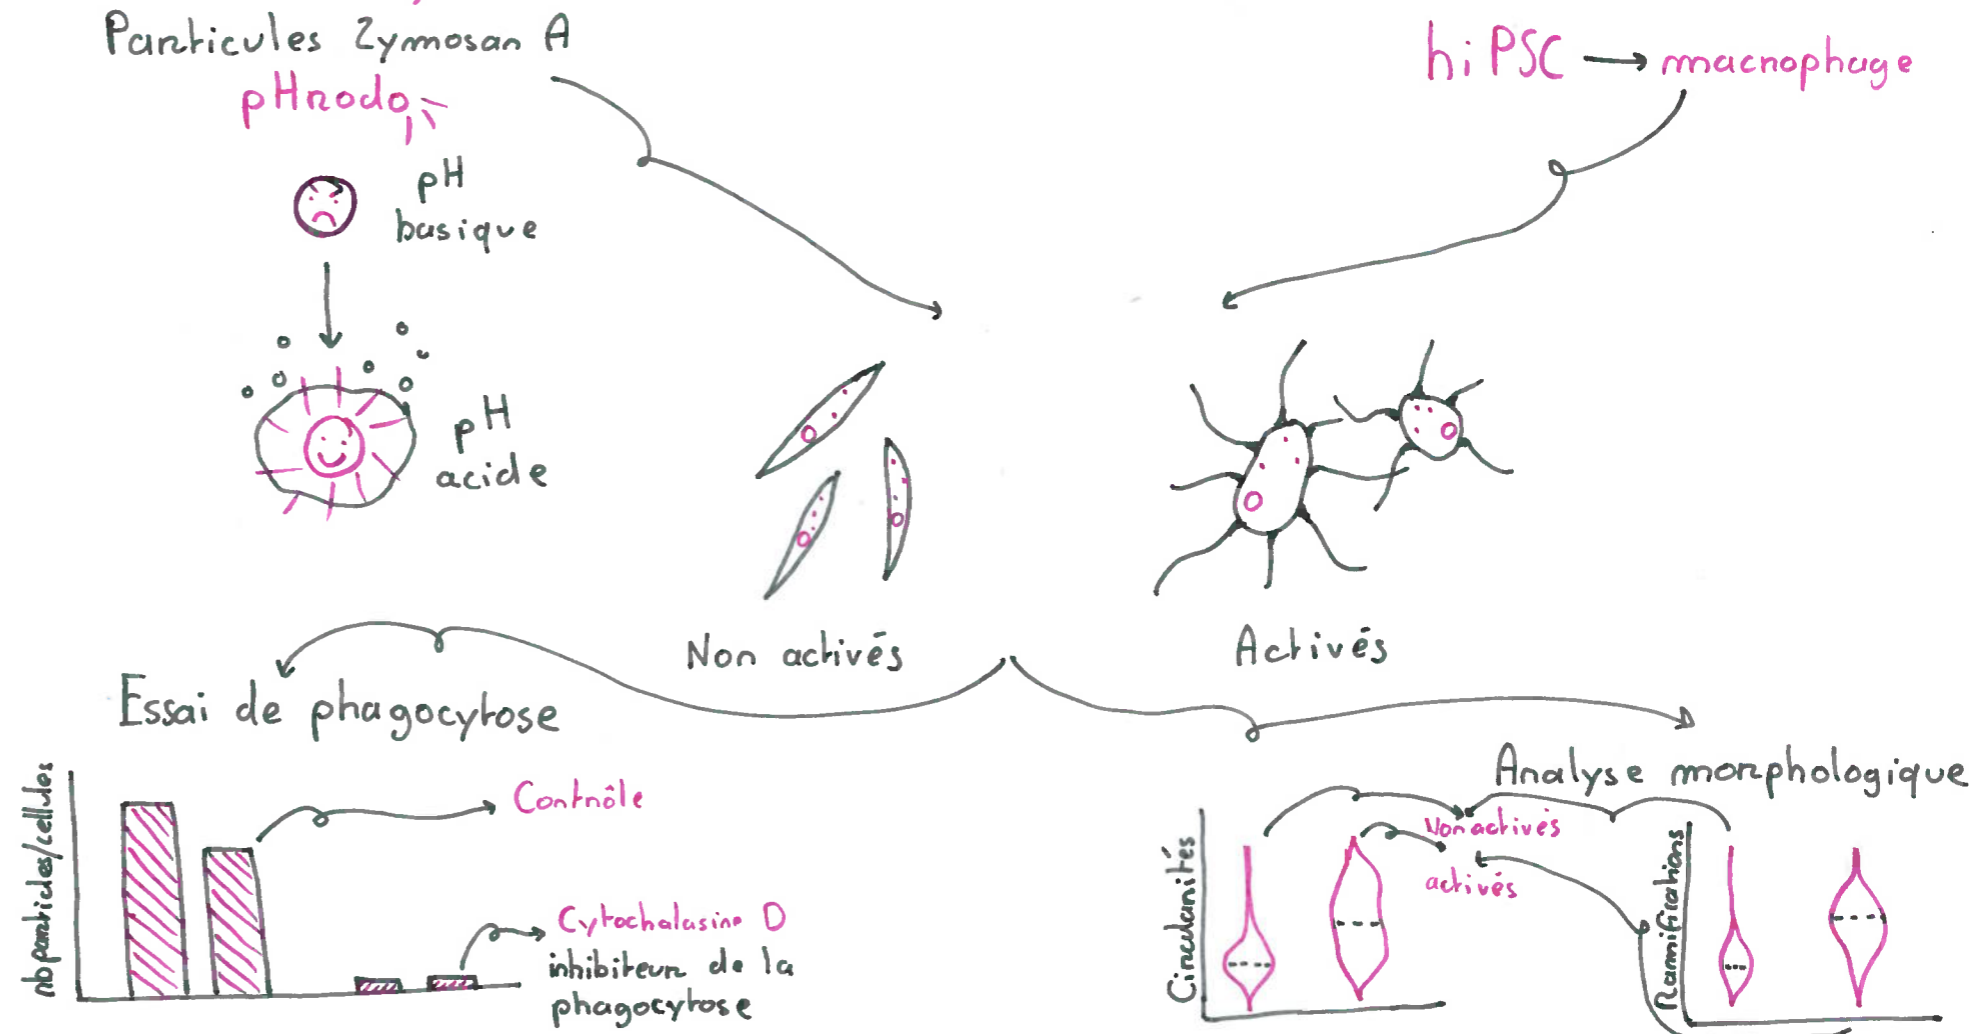 Particules Zymosan A
pHrodo
hiPSC → macrophage
pH
basique
pH
acide
Non activés
Activés
Essai de phagocytose
nb particles/cellules
Contrôle
Cytochalasine D
inhibiteur de la
phagocytose
Analyse morphologique
Circularités
Non activés
activés
Ramifications